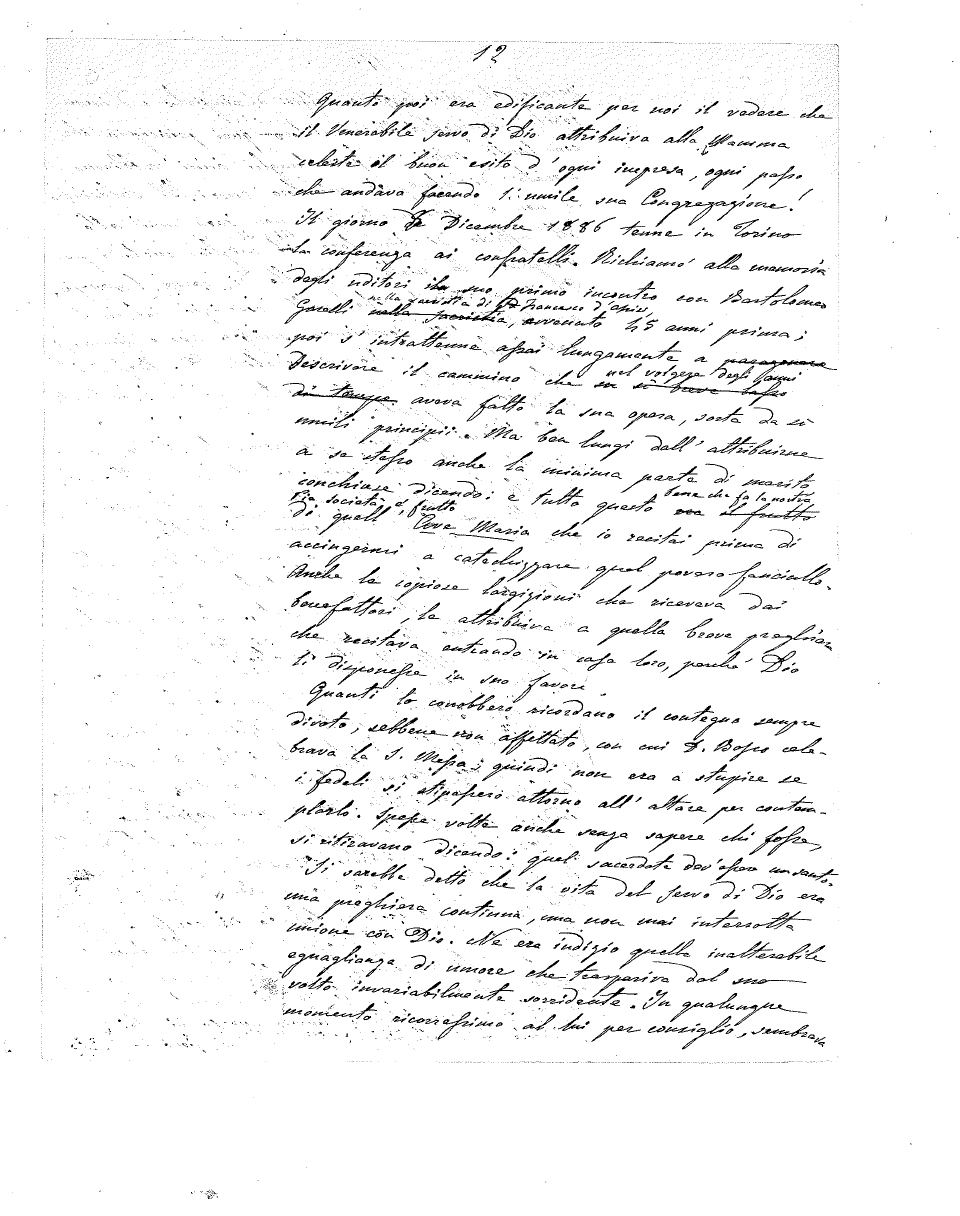 12
Quanto poi era edificante per noi il vedere che
il Venerabile servo di Dio attribuiva alla Mamma
celeste il buon esito d'ogni impresa, ogni passo
che andava facendo l'umile sua Congregazione!
Il giorno 8 Dicembre 1886 tenne in Torino
la conferenza ai confratelli. Richiamò alla memoria
degli uditori il suo primo incontro con Bartolomeo
nella sacristia di S. Francesco d'Assisi,
Garelli nella sacristia, avvenuto 45 anni prima;
poi s'intrattenne assai lungamente a
nel volgere degli anni
descrivere il cammino che in sì breve lasso
di tempo aveva fatto la sua opera, sorta da sì
umili principii. Ma ben lungi dall'attribuirne
a se stesso anche la minima parte di merito
bene che fa la nostra
conchiuse dicendo: e tutto questo era il frutto
Pia società è frutto
di quell'Ave Maria che io recitai prima di
accingermi a catechizzare quel povero fanciullo.
Anche le copiose largizioni che riceveva dai
benefattori, le attribuiva a quella breve preghiera
che recitava entrando in casa loro, perchè Dio
li disponesse in suo favore.
Quanti lo conobbero ricordano il contegno sempre
divoto, sebbene non affettato, con cui D. Bosco cele-
brava la S. Messa; quindi non era a stupire se
i fedeli si stipassero attorno all'altare per contem-
plarlo. Spesse volte anche senza sapere chi fosse,
si ritiravano dicendo: quel sacerdote dev'essere un santo.
Si sarebbe detto che la vita del servo di Dio era
una preghiera continua, una non mai interrotta
unione con Dio. Ne era indizio quella inalterabile
eguaglianza di umore che traspariva dal suo
volto invariabilmente sorridente. In qualunque
momento ricorressimo al lui per consiglio, sembrava